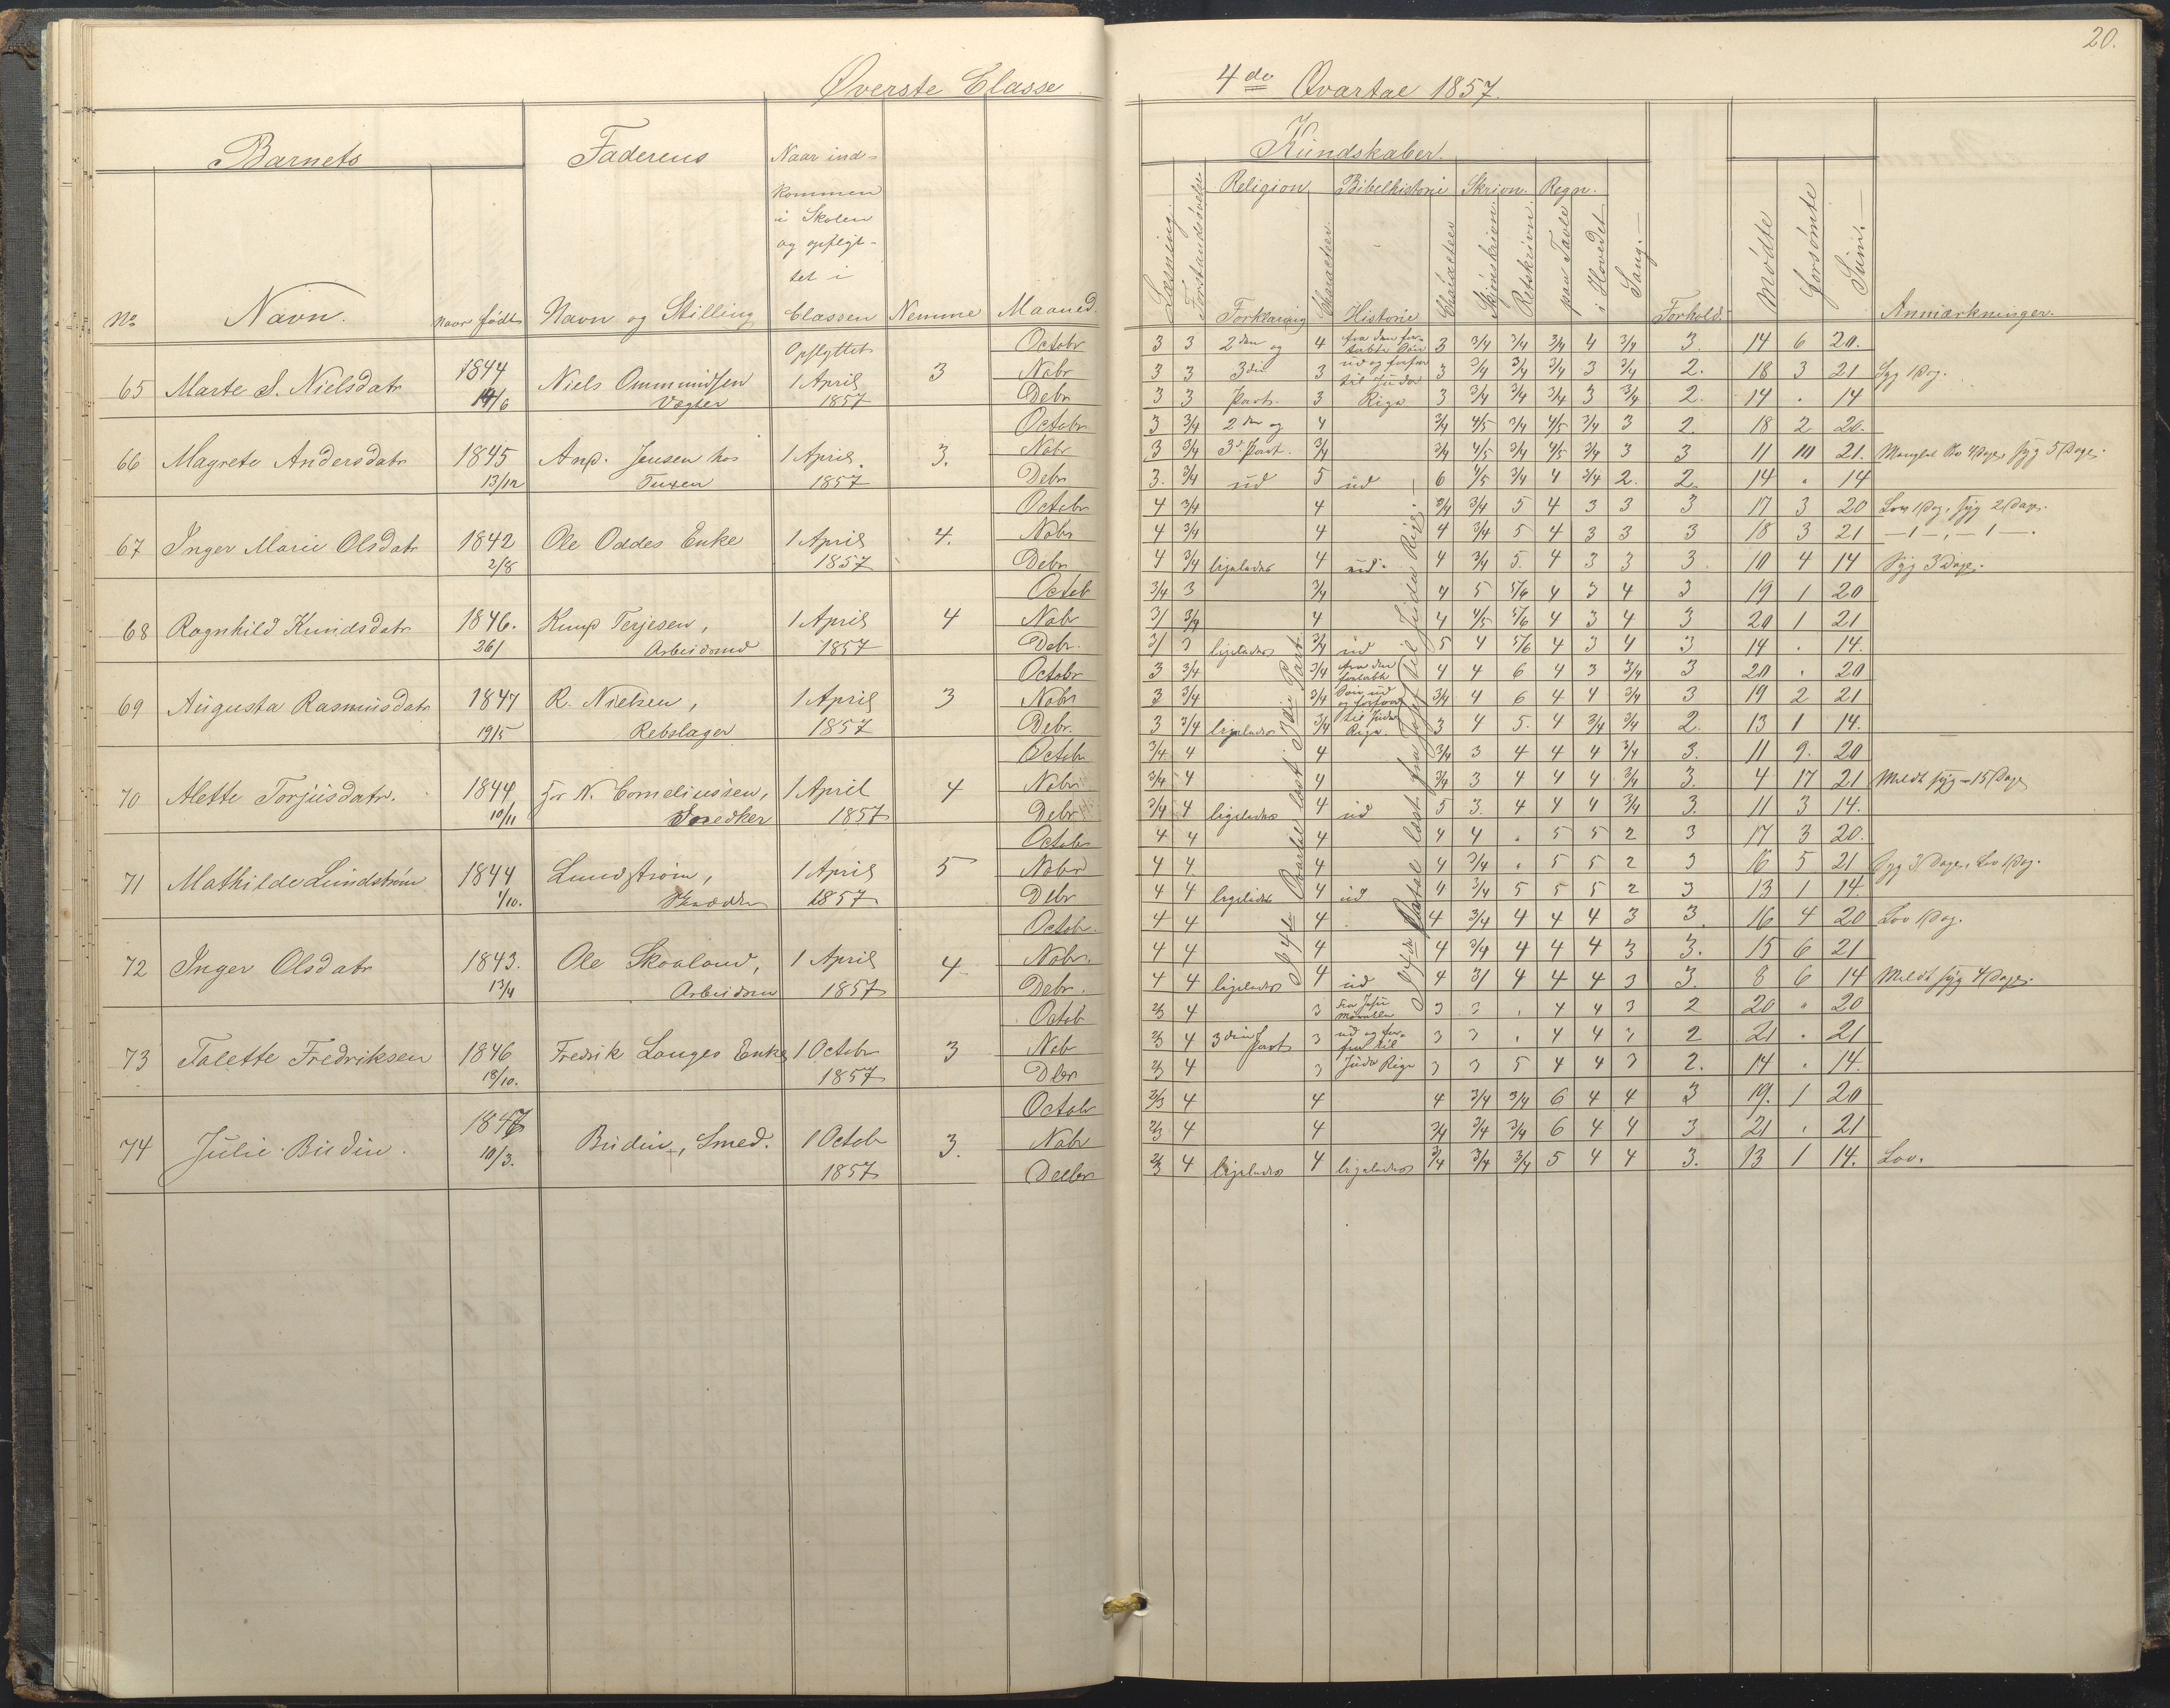 20.
Øverste Classe
4de Qvartal 1857.
Barnets
Faderens
Naar ind-
kommen
i Skolen
og opflyt-
tet i
Classen
Kundskaber.
Religion
Bibelhistorie
Skrivn.
Regn.
No
Navn.
naar født
Navn og Stilling
Nemme
Maaned.
Læsning.
Forstandsøvelse
Forklaring
Characteer
Historie
Characteer
Skjønskrivn.
Retskrivn.
paa Tavle
i Hovedet
Sang.
Forhold.
Mødte
Forsømte
Sum.
Anmærkninger.
65 Marte S. Nielsdatr 1844 14/6 Niels Ommundsen Vægter Opflyttet 1 April 1857 3
Octobr 3 3 2den og 4 fra den for- tabte Søn 3 3/4 3/4 3/4 4 3/4 3. 14 6 20.
Nobr 3 3 3die 3 ud og forfra 3 3/4 3/4 3/4 3 3/4 2. 18 3 21 Syg 1 Dag.
Debr 3 3 Part. 3 til Juda Rige 3 3/4 3/4 3/4 3 3/4 2. 14 . 14
66 Magrete Andersdatr 1845 13/12 And. Jensen hos Tuxen 1 April 1857 3.
Octobr 3 3/4 2den og 4 3/4 4/5 3/4 4/5 3/4 3 2. 18 2 20.
Nobr 3 3/4 3d Part. 3/4 3/4 4/5 3/4 4/5 3/4 3 3 11 10 21. Manglet Sko 4 Dage, syg 5 Dage.
Debr 3. 3/4 ud 5 ud 6 4/5 3/4 4 3/4 2. 2. 14 . 14
67 Inger Marie Olsdatr 1842 2/8 Ole Oddes Enke 1 April 1857 4.
Octobr 4 3/4 4 3/4 3/4 5 4 3 3 3 17 3 20 Lov 1 Dag, syg 2 Dage.
Nobr 4 3/4 4 4 3/4 5 4 3 3 3 18 3 21 — 1 —, — 1 —.
Debr 4 3/4 ligeledes 4 ud. 4 3/4 5. 4 3 3 3. 10 4 14 Syg 3 Dage.
68 Ragnhild Knudsdatr 1846. 26/1 Knud Terjesen, Arbeidsmd 1 April 1857 4
Octob 3/4 3 3/4 4 5 5/6 4 3 4 3 19 1 20
Nobr 3/ 3/4 4 4 4/5 5/6 4 3 4 3 20 1 21
Debr. 3/ 3 ligeledes 3/4 ud 5 4 5/6 4 3 4 3 14 . 14.
69 Augusta Rasmusdatr 1847 19/5 R. Nielsen, Rebslager 1 April 1857 3
Octobr 3 3/4 3/4 fra den fortabte 4 4 6 4 3 3/4 3 20 . 20
Nobr 3 3/4 3/4 Søn ud og forfra 3/4 4 6 4 4 3/4 3 19 2 21
Debr. 3 3/4 ligeledes 3/4 til Juda Rige. 3 4 5. 4 3/4 3/4 2. 13 1 14.
70 Alette Torjusdatr. 1844 10/11 for N. Corneliussen, Snedker 1 April 1857 4
Octobr 3/4 4 4 3/4 3 4 4 4 3/4 3. 11 9. 20
Nobr 3/4 4 4 3/4 3 4 4 4 3/4 3. 4 17 21 Meldt syg 15 Dage
Debr 3/4 4 ligeledes 4 ud 5 3. 4 4 4 3/4 3. 11 3 14.
71 Mathilde Lundstrøm 1844 1/10. Lundstrøm, Skrædder 1 April 1857 5
Octobr 4 4 4 4 4 . 5 5 2 3 17 3 20.
Nobr 4 4 4 4 3/4 . 5 5 2 3 16 5 21 Syg 3 Dage, Lov 1 Dag.
Debr 4 4 ligeledes 4 ud 4 3/4 5 5 5 2 3 13 1 14.
72 Inger Olsdatr 1843. 13/4 Ole Skoaland, Arbeidsm 1 April 1857 4
Octobr. 4 4 4 4 3/4 4 4 4 3 3. 16 4 20 Lov 1 Dag.
Nobr. 4 4 4 4 3/4 4 4 4 3 3. 15 6 21
Debr. 4 4 ligeledes 4 ud 4 3/ 4 4 4 3 3. 8 6 14 Meldt syg 4 Dage.
73 Talette Fredriksen 1846 18/10. Fredrik Langes Enke 1 Octobr 1857 3
Octob 2/3 4 3 Fra Jesu Mirakler 3 3 . 4 4 3 2 20 . 20
Nob 2/3 4 3die Part 3 ud og for- fra til 3 3 . 4 4 3 2 21 . 21
Dbr 2/3 4 3 Juda Rige 3 3 5 4 4 3 2. 14 . 14.
74 Julie Budin. 1847 10/3. Budin, Smed. 1 Octob 1857 3.
Octob 2/3 4 4 4 3/4 3/4 6 4 4 3 19. 1 20
Nobr 2/3 4 4 3/4 3/4 3/4 6 4 4 3 21 . 21
Decbr 2/3 4 ligeledes 4 ligeledes 3/4 3/4 3/4 5 4 4 3. 13 1 14. Lov.
I 4de Qvartal læst 3die Part
I 4de Qvartal læst fra Josef til Juda Rige.